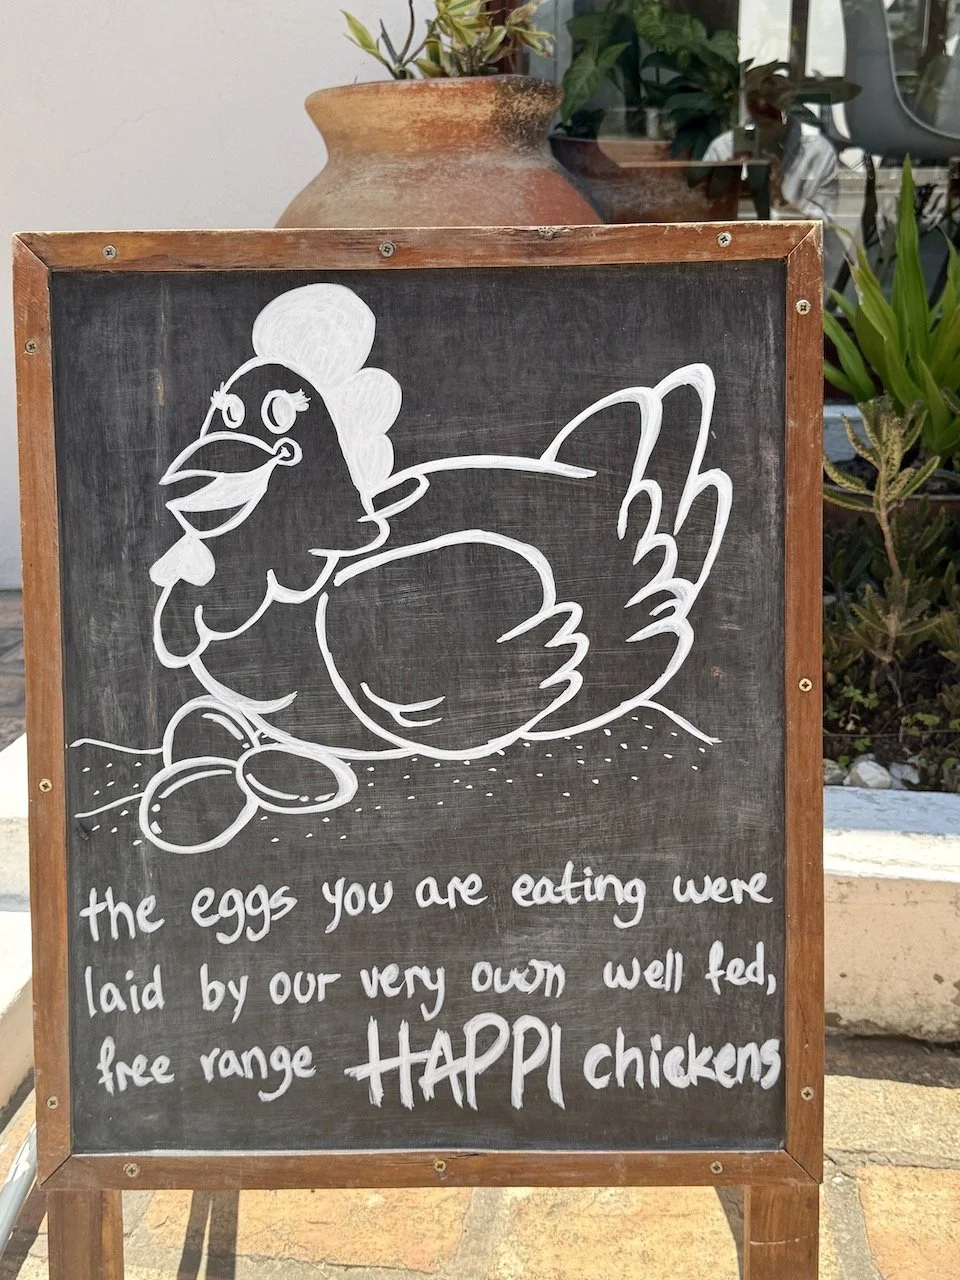 the eggs you are eating were
laid by our very own well fed,
free range HAPPI chickens